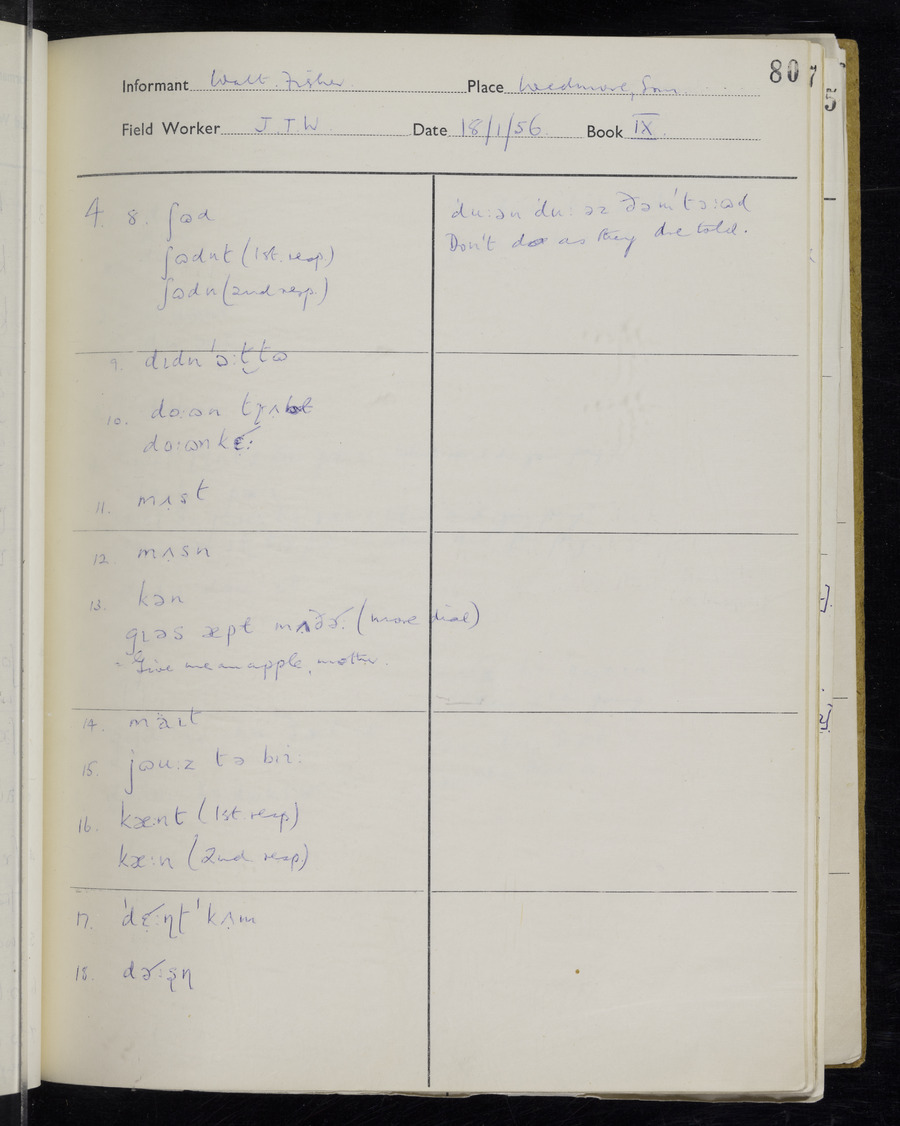 80 7
5
Informant Walt. Fisher Place Wedmore, Som.
Field Worker J.T.W. Date 18/1/56. Book IX
4. 8. ʃɷd
ʃɷdnt (1st. resp.)
ʃɷdn (2nd resp.)
9. dɪdn 'ɔ:t̬ tɷ
10. dɑ:ɷn
dɑ:ɷnkɛ˞:
11. mʌ̣st
12. mʌ̣sn
13. kən
gɪəs æpɫ mʌ̣ðə˞. (more dial)
Give me an apple, mother.
14. mäɪt
15. jəu:z tə bɪi:
16. kæ:nt (1st resp)
kæ:n (2nd resp.)
17. 'dɛ̣˞:ɳt 'kʌ̣m
18. də˞:ʂɳ
'du:ən 'du: əz ðəm 'tɔ:ɷd
Don't do as they are told.